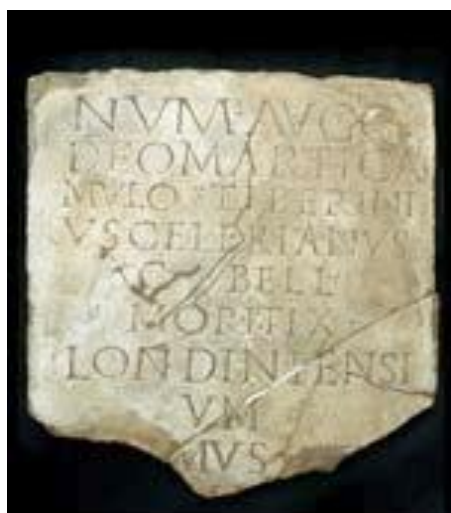 NVM·AVGG
DEOMARTICA
MVLO·TIBERINI
VSCELERIANVS
C·BELL
MORITIX
LONDINIENSI
VM
VS